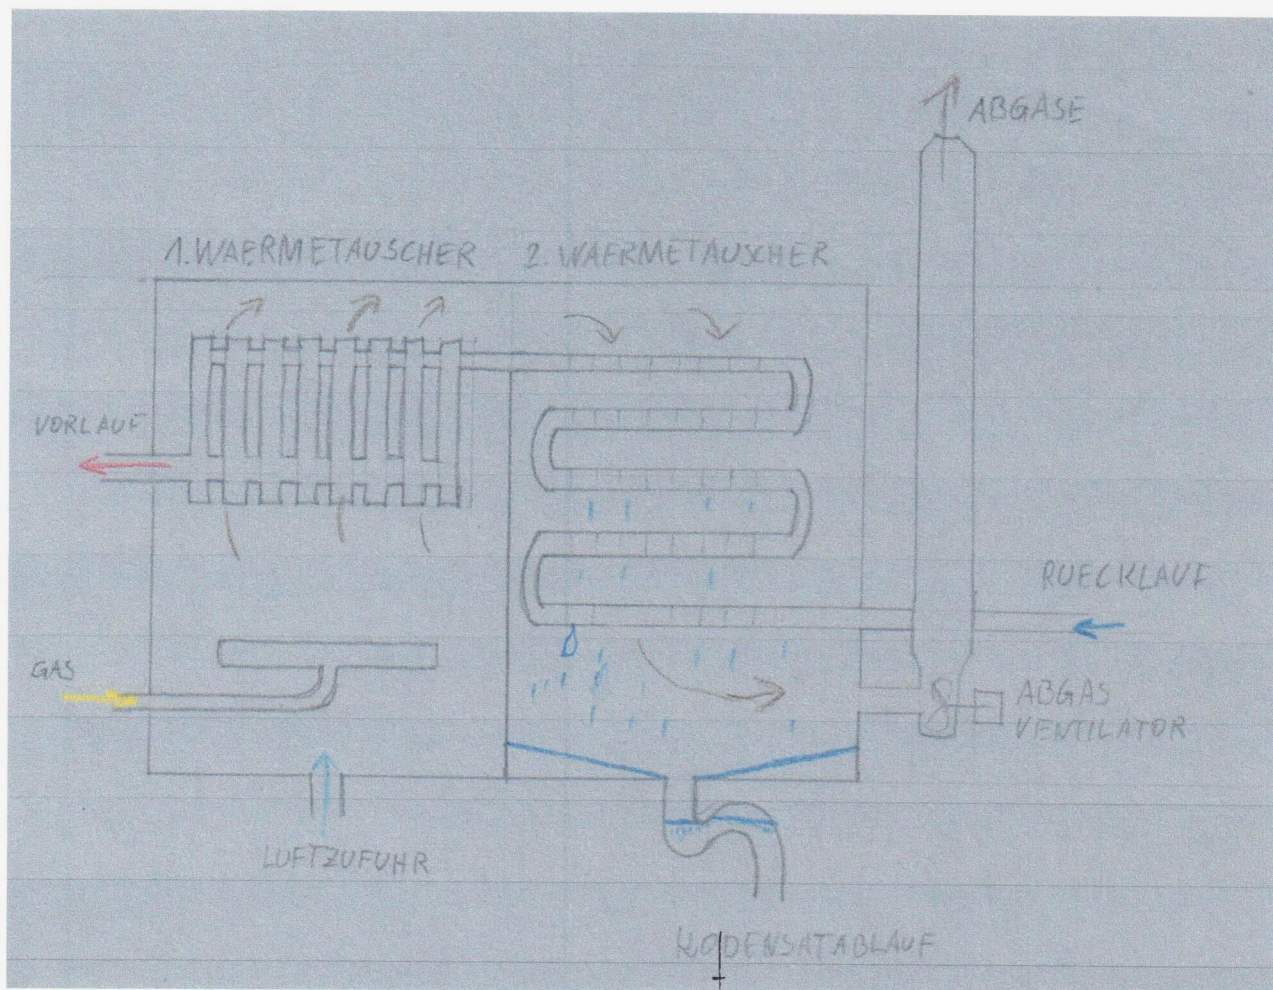 ABGASE
1. WAERMETAUSCHER 2. WAERMETAUSCHER
VORLAUF
RUECKLAUF
GAS
ABGAS
VENTILATOR
LUFTZUFUHR
KODENSATABLAUF